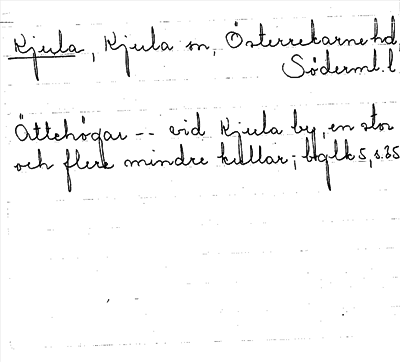 Kjula, Kjula sn, Österrekarne hd,
Söderml. l.
Ättehögar -- vid Kjula by, en stor
och flere mindre kullar; bglk 5, s. 35